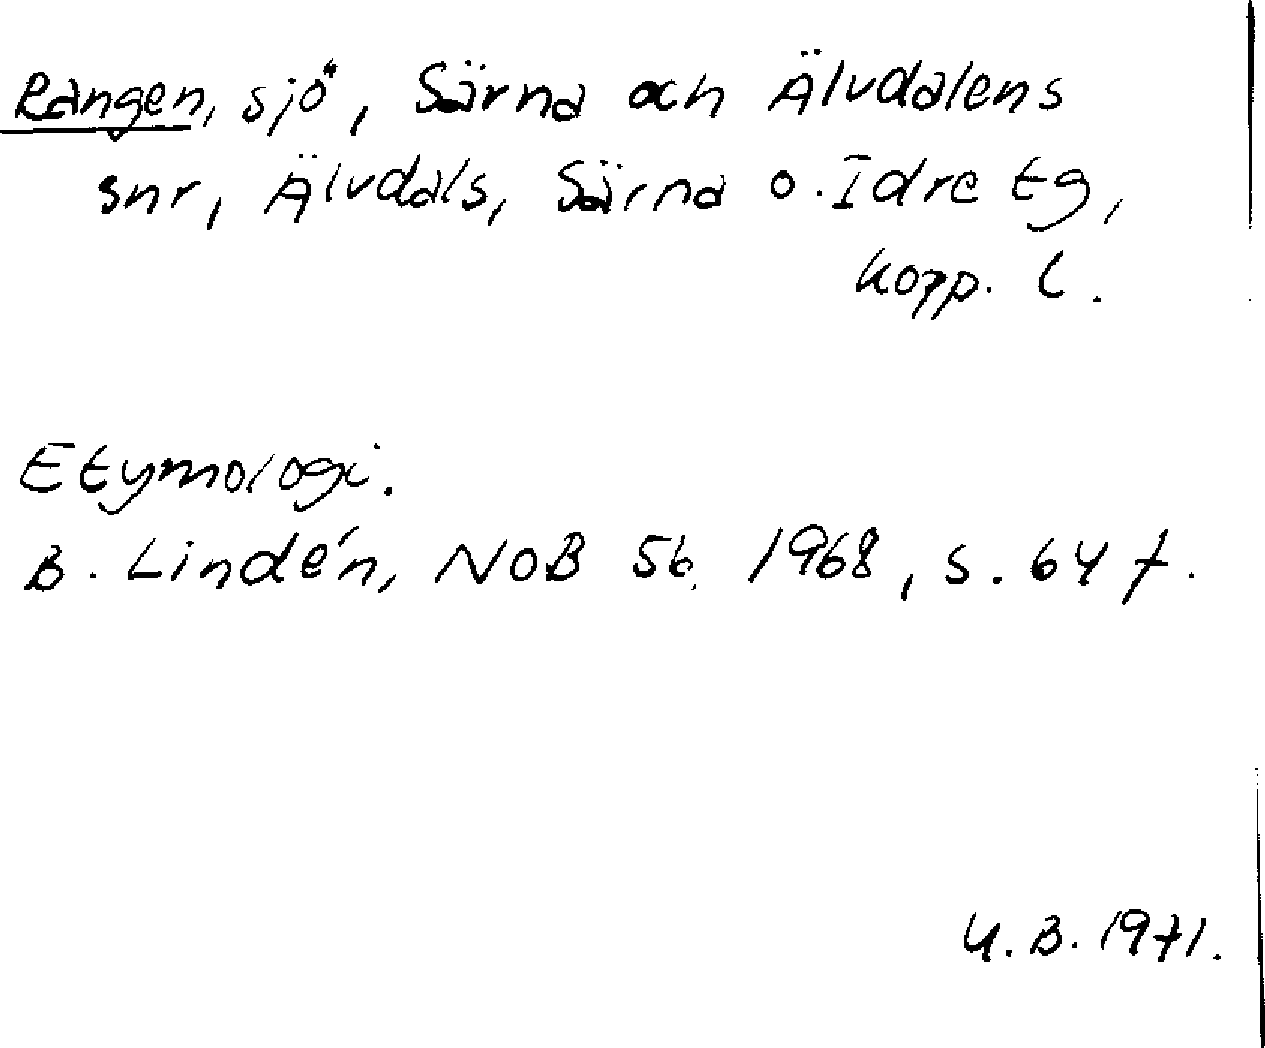 Rangen, sjö, Särna och Älvdalens
snr, Älvdals, Särna o. Idre tg,
Kopp. l.
Etymologi.
B. Lindén, NoB 56. 1968, s. 64 f.
U.B. 1971.